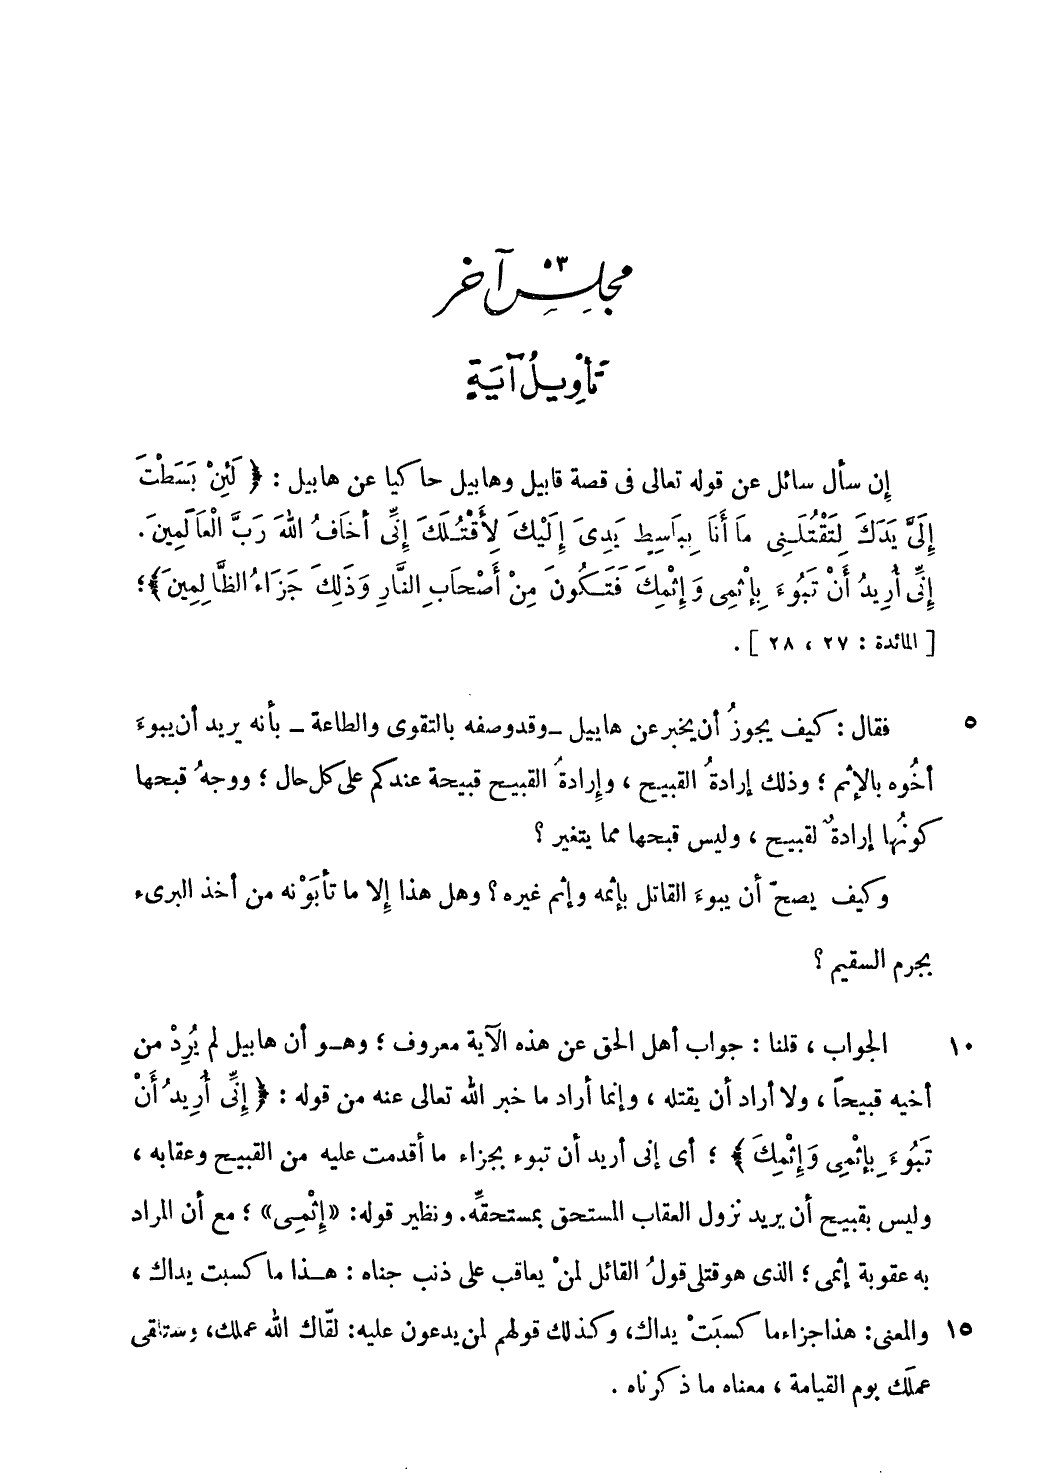 مجلس آخر ٥٣
تَأْوِيلُ آيَةٍ
إن سأل سائل عن قوله تعالى فى قصة قابيل وهابيل حاكيا عن هابيل : ﴿ لَئِنْ بَسَطْتَ
إِلَىَّ يَدَكَ لِتَقْتُلَنِى مَا أَنَا بِبَاسِطٍ يَدِىَ إِلَيْكَ لِأَقْتُلَكَ إِنِّى أَخَافُ اللهَ رَبَّ الْعَالَمِينَ .
إِنِّى أُرِيدُ أَنْ تَبُوءَ بِإِثْمِى وَإِثْمِكَ فَتَكُونَ مِنْ أَصْحَابِ النَّارِ وَذَلِكَ جَزَاءُ الظَّالِمِينَ﴾؛
[ المائدة : ٢٧ ، ٢٨ ] .
٥ فقال : كيف يجوزُ أن يخبر عن هابيل ــ وقد وصفه بالتقوى والطاعة ــ بأنه يريد أن يبوءَ
أخُوه بالإثم ؛ وذلك إرادةُ القبيح ، وإرادةُ القبيح قبيحة عندكم على كل حال ؛ ووجهُ قبحها
كونُها إرادةٌ لقبيح ، وليس قبحها مما يتغير ؟
وكيف يصحّ أن يبوءَ القاتل بإثمه وإثم غيره ؟ وهل هذا إلا ما تأبَوْنه من أخذ البرىء
بجرم السقيم ؟
١٠ الجواب ، قلنا : جواب أهل الحق عن هذه الآية معروف ؛ وهو أن هابيل لم يُرِدْ من
أخيه قبيحاً ، ولا أراد أن يقتله ، وإنما أراد ما خبر الله تعالى عنه من قوله : ﴿ إِنِّى أُرِيدُ أَنْ
تَبُوءَ بِإِثْمِى وَإِثْمِكَ ﴾ ؛ أى إنى أريد أن تبوء بجزاء ما أقدمت عليه من القبيح وعقابه ،
وليس بقبيح أن يريد نزول العقاب المستحق بمستحقِّه. ونظير قوله: «إِثْمِى» ؛ مع أن المراد
به عقوبة إثمى ؛ الذى هو قتلى قولُ القائل لمنْ يعاقب على ذنب جناه : هذا ما كسبت يداك ،
١٥ والمعنى: هذا جزاء ما كسبَتْ يداك، وكذلك قولهم لمن يدعون عليه: لقّاك الله عملك، وستلقى
عملَك يوم القيامة ، معناه ما ذكرناه .